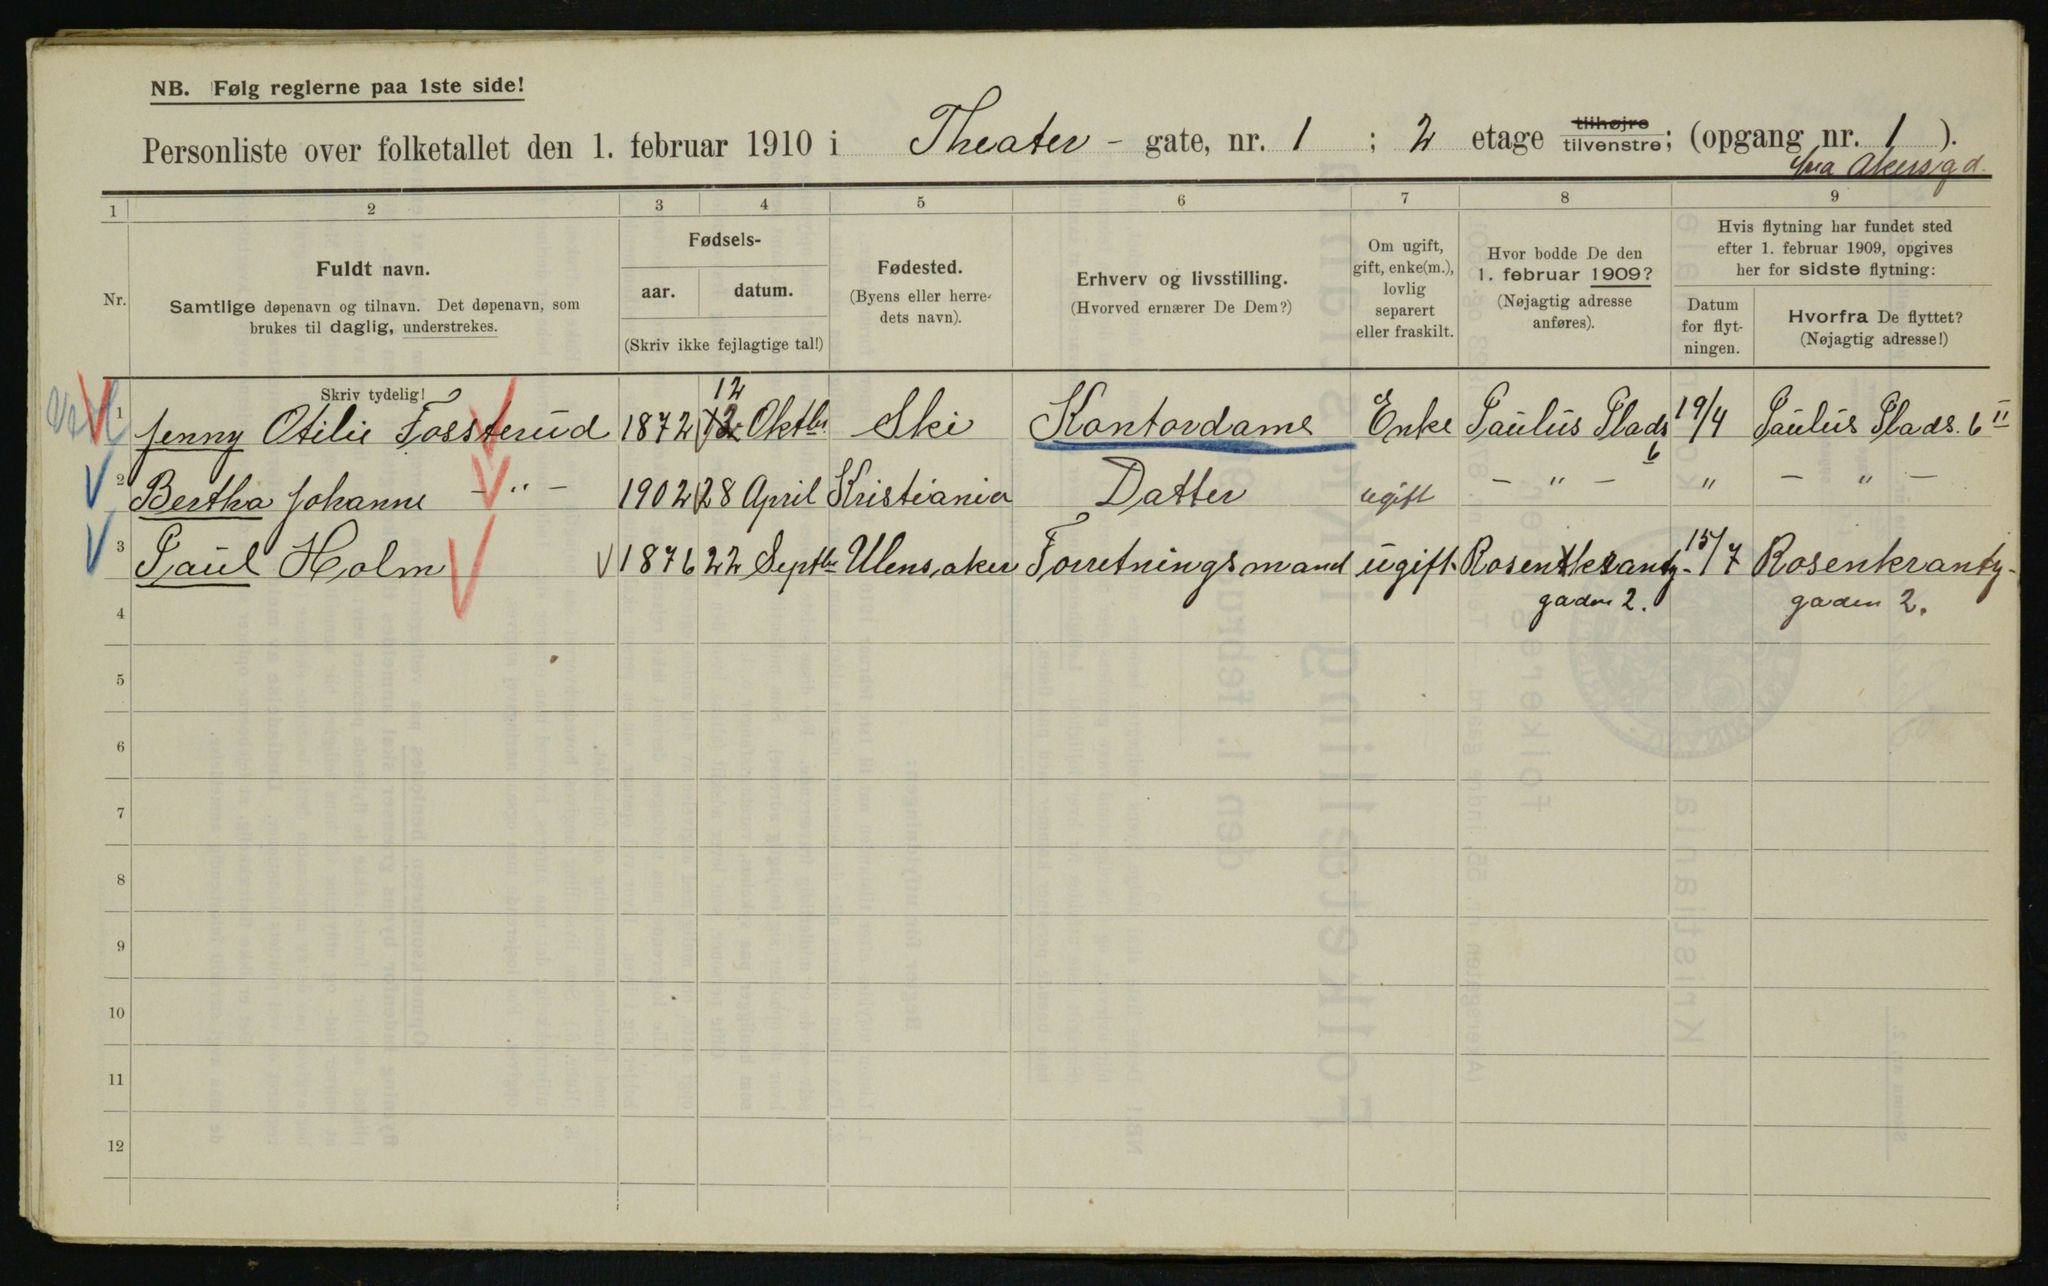 NB. Følg reglerne paa 1ste side!
Personliste over folketallet den 1. februar 1910 i Theater - gate, nr. 1 ; 2 etage tilhøjre tilvenstre; (opgang nr. 1 ).
fra Akersgd.
1 2 3 4 5 6 7 8 9
Nr.
Fuldt navn.
Samtlige døpenavn og tilnavn. Det døpenavn, som
brukes til daglig, understrekes.
Fødsels-
aar. datum.
(Skriv ikke fejlagtige tal!)
Fødested.
(Byens eller herre-
dets navn).
Erhverv og livsstilling.
(Hvorved ernærer De Dem?)
Om ugift,
gift, enke(m.),
lovlig
separert
eller fraskilt.
Hvor bodde De den
1. februar 1909?
(Nøjagtig adresse
anføres).
Hvis flytning har fundet sted
efter 1. februar 1909, opgives
her for sidste flytning:
Datum
for flyt-
ningen.
Hvorfra De flyttet?
(Nøjagtig adresse!)
Skriv tydelig!
12
1 Jenny Otilie Fossterud 1872 12 Oktbr Ski Kontordame Enke Paulus Plads 6 19/4 Paulus Plads. 6 II
2 Bertha Johanne — " — 1902 28 April Kristiania Datter ugift — " — " — " —
3 Paul Holm 1876 22 Septbr Ulensaker Forretningsmand ugift. Rosenkrantz- 15/7 Rosenkrantz-
4 gaden 2. gaden 2.
5
6
7
8
9
10
11
12